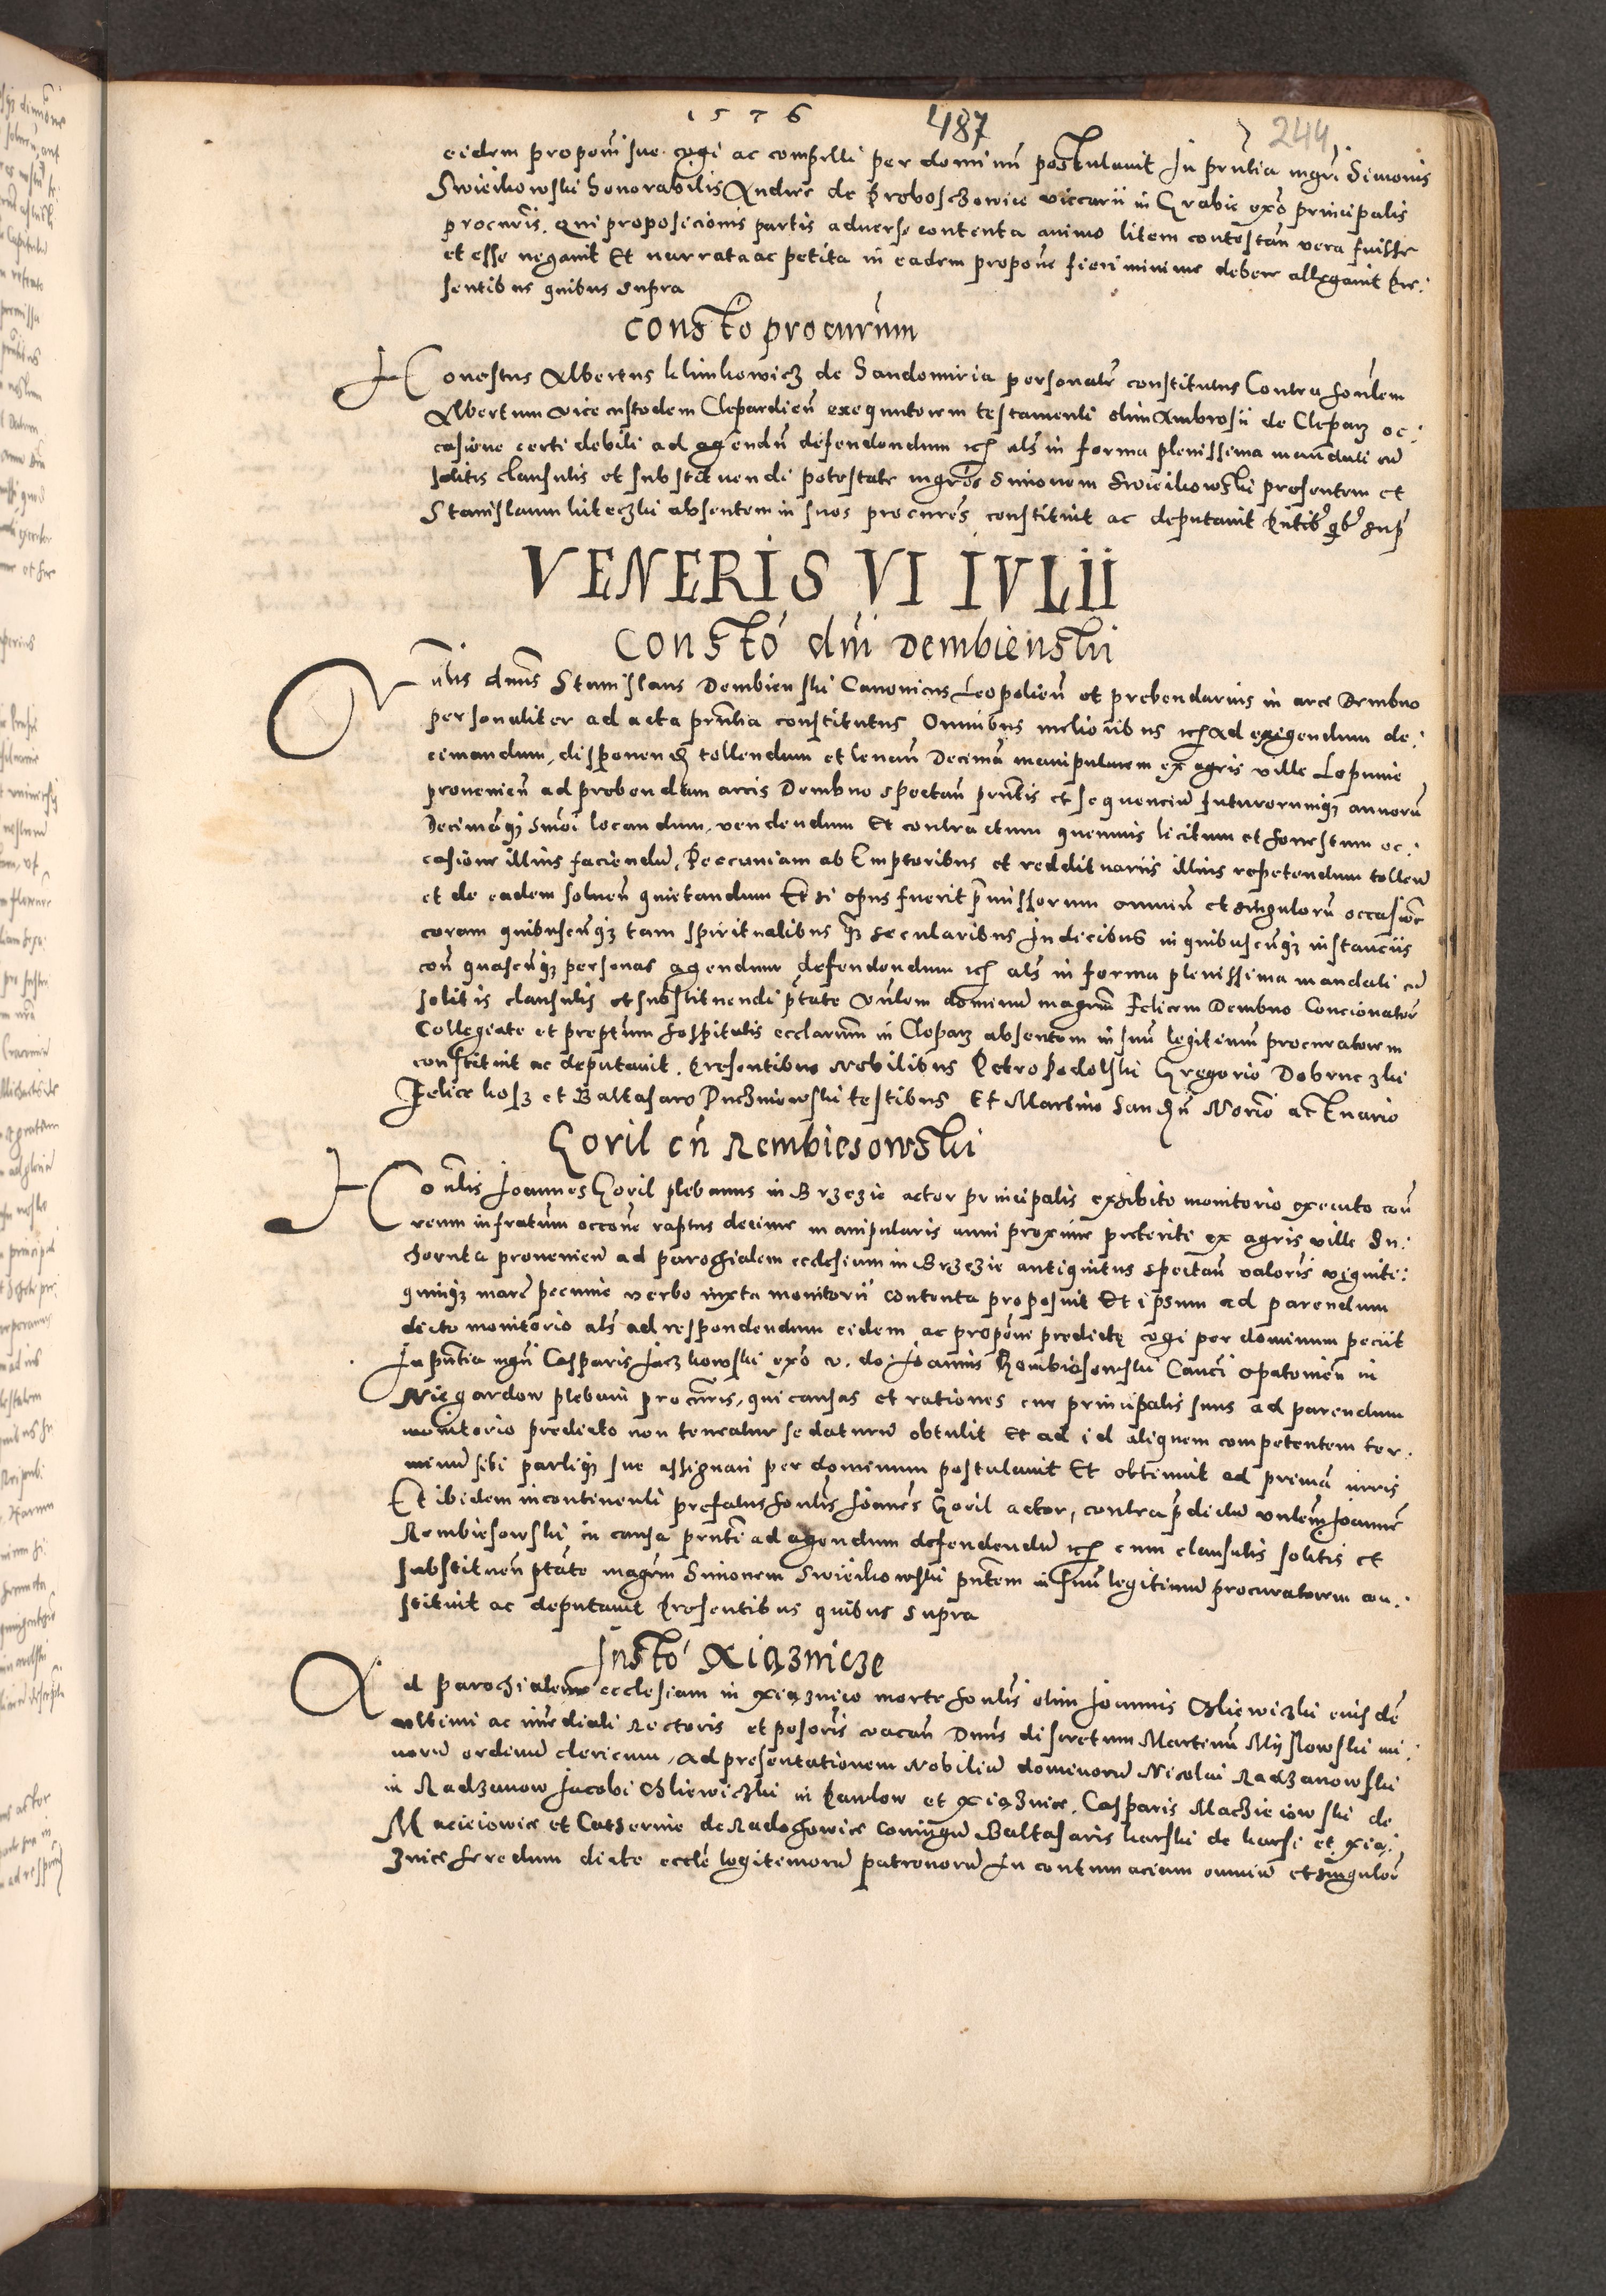 1576 487 244
eidem proponi sue cogi ac compelli per dominũ postulauit In pñtia mgri Simonis
Swieikowski honorabilis Andree de Proboschowice viccarii in Grabie exo principalis
procuris. Qui proposicionis partis aduerse contenta animo litem contestañ vera fuisse
et esse negauit Et narrata ac petita in eadem propone fieri minime debere allegauit Pre:
sentibus quibus supra
Consto procurum
Honestus Albertus Klimkowicz de Sandomiria personalr constitutus Contra honlem
Albertum vice custodem Clepardieñ exequutorem testamenti olim Ambrosii de Cleparz oc:
casione certi debiti ad agendũ defendendum etc als in forma plenissima mandati cũ
solitis clausulis et substituendi potestate mgros Simonem Swieikowski presentem et
Stanislaum Kiteczki absentem in suos procures constituit ac deputauit Pñtibꝰ qbꝰ supͣ
VENERIS VI IVLII
Consto dñi Dembienski
Vñlis dñus Stanislaus Dembienski Canonicus Leopolieñ et prebendarius in arce Dembno
personaliter ad acta pñtia constitutus Omnibus melioribus etc Ad exigendum de:
cimandum, disponend tollendum et leuañ Decimã manipularem ex agris ville Lopunie
provenieñ ad prebendam arcis Dembno spectañ pñtis et sequenciũ futurorumqꝫ annorũ
Decimãqꝫ hmoi locandum, vendendum Et contractum quemuis licitum et honestum oc:
casione illius faciendũ, Pecuniam ab Emptoribus et reddituariis illius repetendum tollenđ
et de eadem solueñ quietandum Et si opus fuerit p̃missorum omniũ et singulorũ occasiõe
coram quibuscũqꝫ tam spiritualibus qꝫ secularibus Iudicibus in quibuscũqꝫ instanciis
coñ quascũqꝫ personas agendum, defendendum etc als in forma plenissima mandati cũ
solitis clausulis et substituendi ptate Vñlem dominũ magrm Felicem Dembno Concionatorẽ
Collegiate et preptum hospitalis ecclarum in Cleparz absentem in suũ legitimũ procuratorem
constituit ac deputauit. Presentibus Nobilibus Petro Podolski Gregorio Dobruczki
Felice Kosz et Baltasaro Puchniowski testibus Et Martino Sandũ Norio actuario
Goril cñ Rembiesowski
Honlis Ioannes Goril plebanus in Brzezie actor principalis exhibito monitorio executo coñ
reum infratum occone raptus decime manipularis anni proxime preterite ex agris ville Su:
chorãta provenienđ ad parochialem ecclesiam in Brzezie antiquitus spectañ valoris viginti:
quinqꝫ marc pecunie verbo iuxta monitorii contenta proposuit Et ipsum ad parendum
dicto monitorio als ad respondendum eidem ac propõni predictę cogi per dominum peciit
In pñtia mgri Casparis Iaczkowski exo v. do: Ioannis Rembiesowski Canci Opatowieñ in
Niegardow plebani procuris, qui causas et rationes cur principalis suus ad parendum
monitorio predicto non teneatur se daturũ obtulit Et ad id aliquem competentem ter:
minũ sibi partiqꝫ sue assignari per dominum postulauit Et obtinuit ad primã iuris
Et ibidem incontinenti prefatus honlis Ioanes Goril actor, contra p̃dictũ vnlem Ioannẽ
Rembiesowski in causa pñti ad agendum defendendũ etc cum clausulis solitis et
substitueñ ptate magrm Simonem Swieikowski pñtem in suũ legitimũ procuratorem con:
stituit ac deputauit Presentibus quibus supra
Insto Xiąznicze
Ad parochialem ecclesiam in Xiąznice morte honlis olim Ioannis Gliewiczki eius dẽ
vltimi ac imediati Rectoris et posoris vacañ Dñus discretum Martinũ Mysłowski mi:
norũ ordinũ clericum, Ad presentationem Nobiliũ dominorũ Nicolai Radzanowski
in Radzanow Iacobi Gliewiczki in Pawlow et Xiąznice, Casparis Machieiowski de
Macieiowice et Catherine de Radochowice coniugũ Baltasaris Karski de Karsi et Xią:
znice heredum dicte eccle legitimorũ patronorũ In contumaciam omniũ et singulorũ